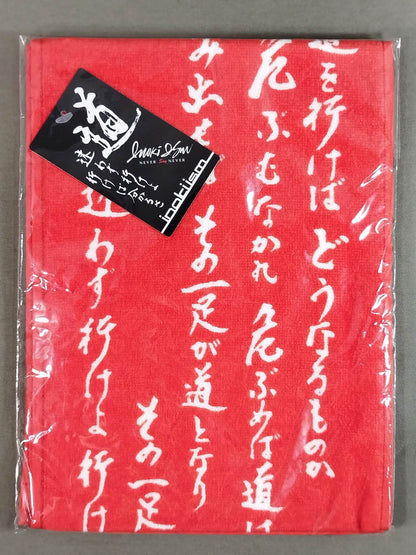 道を行けば どうなるものか
危ぶむなかれ 危ぶめば道は
み出せば その一足が道となり
その一足
迷わず行けよ 行け
道
Inoki Ism
NEVER SAY NEVER
迷わず行けよ
行けばわかるさ
inokiism